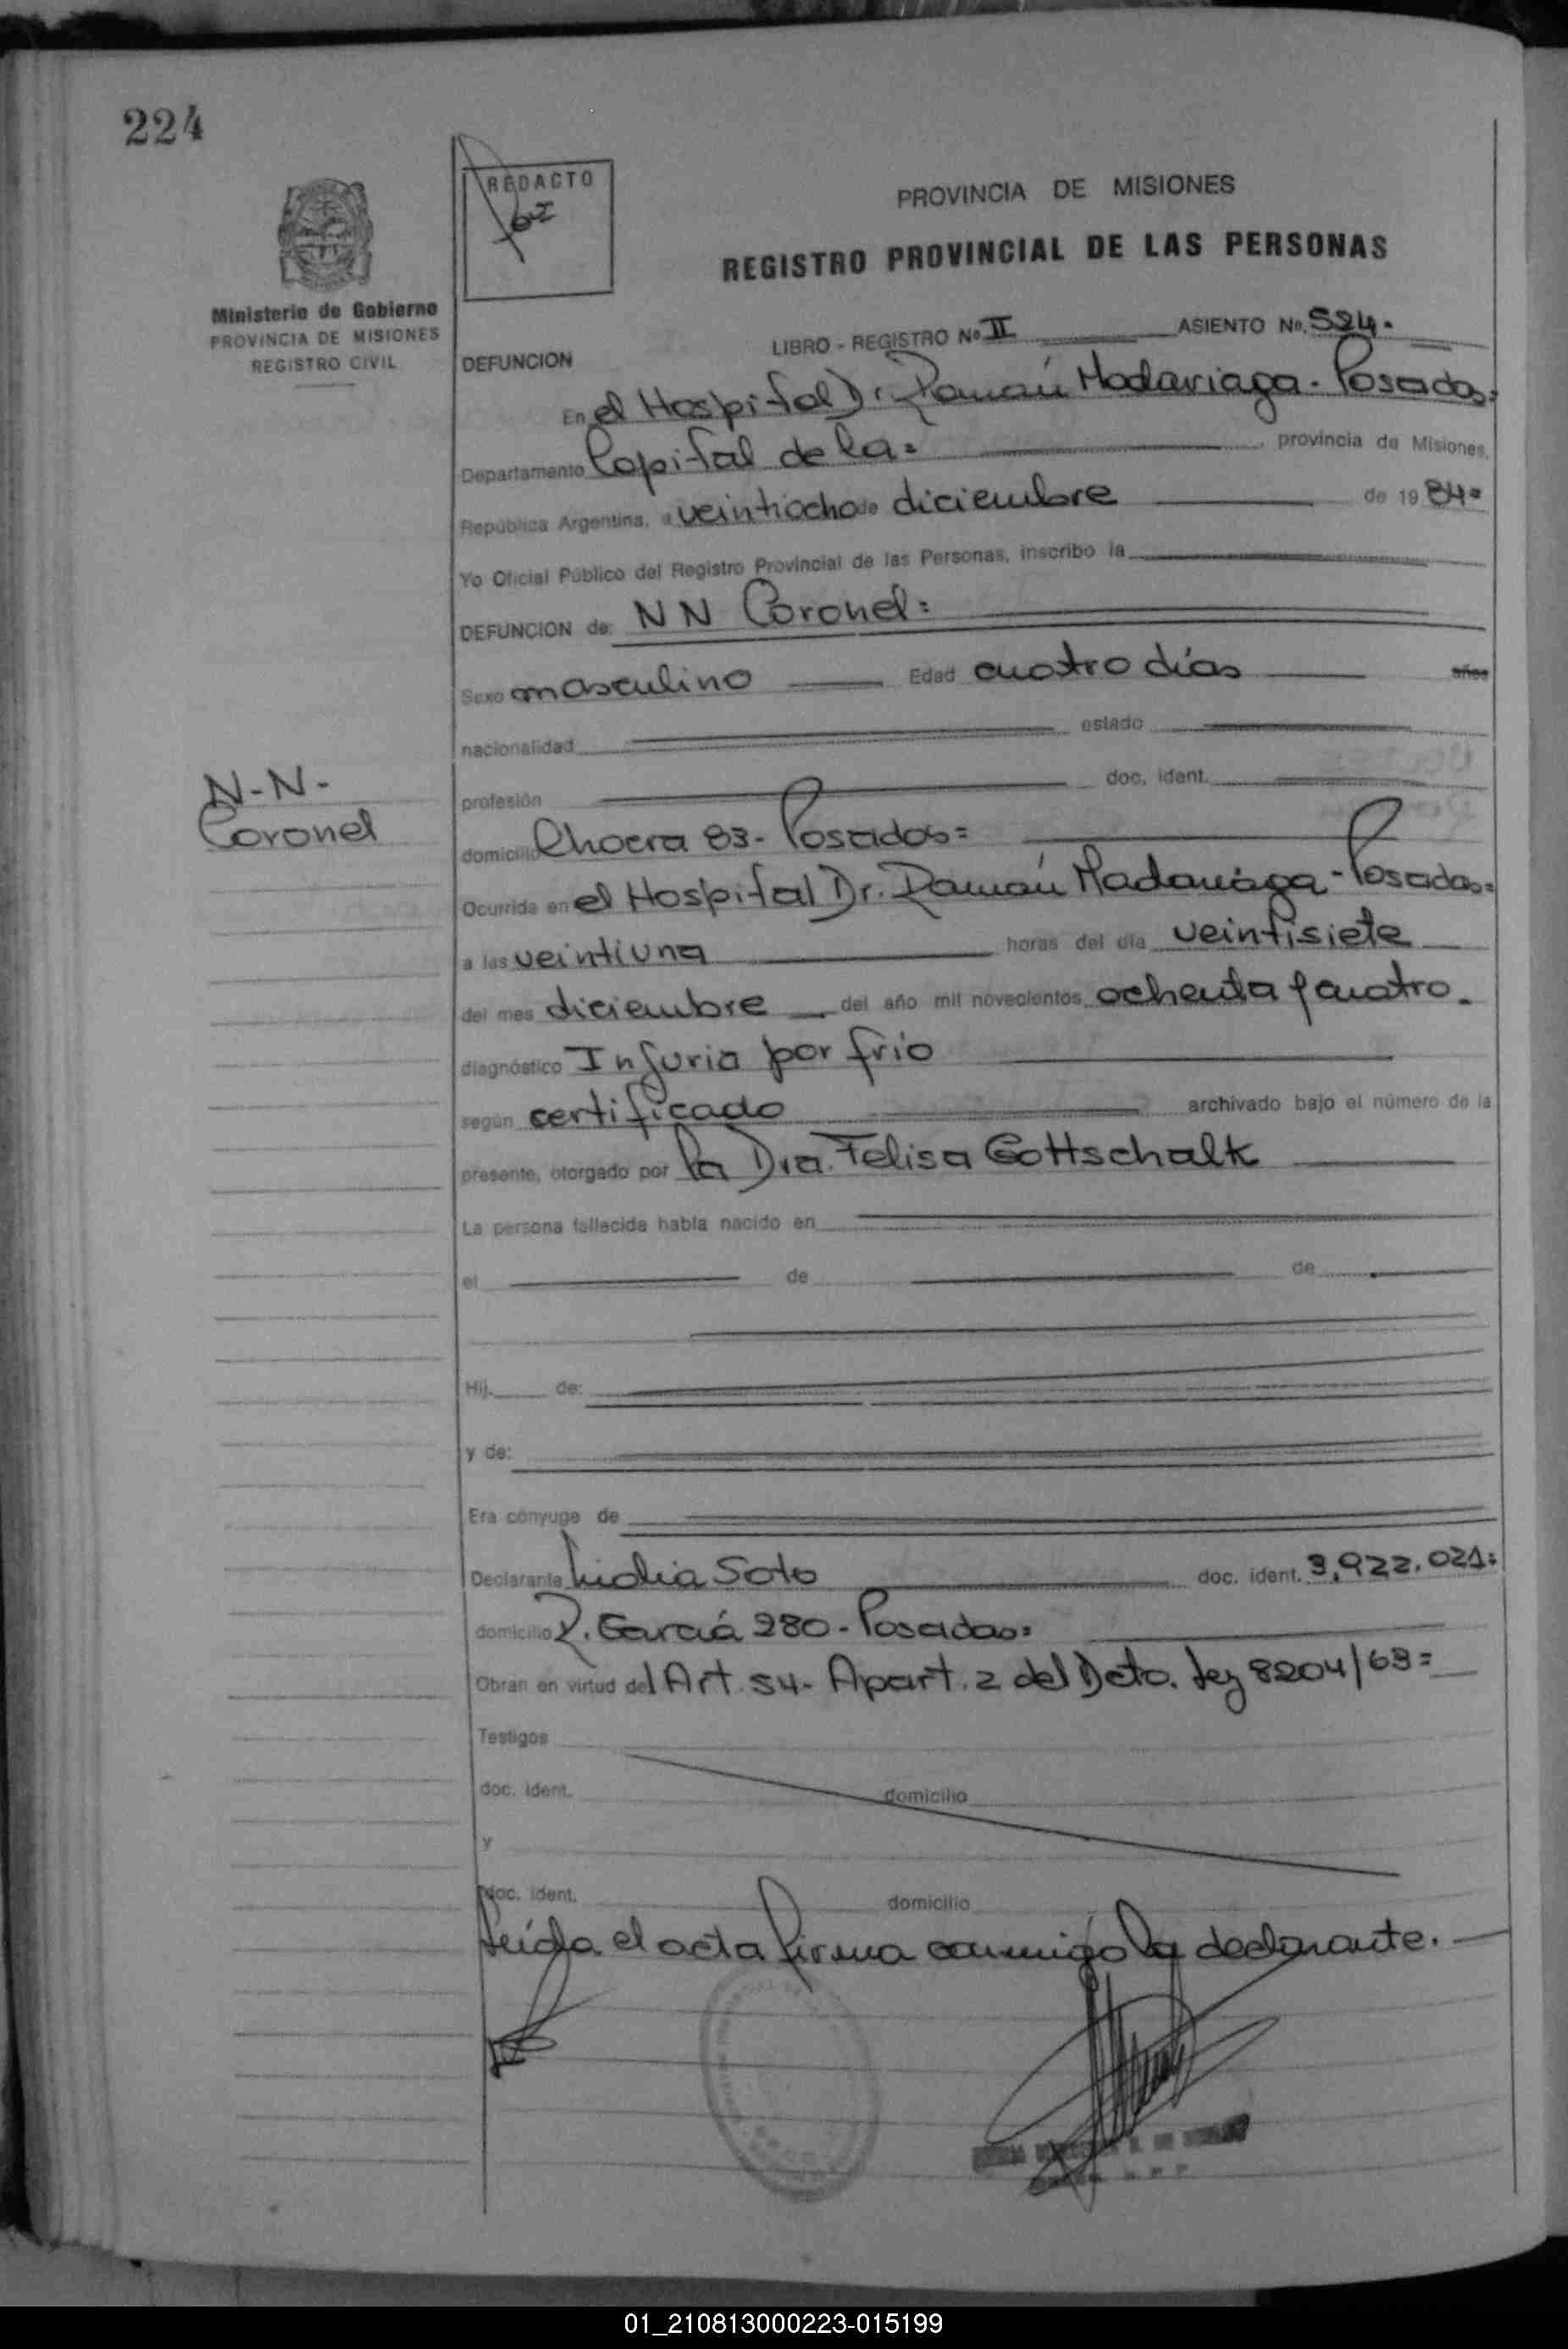 224
REDACTO
Ministerio de Gobierno
PROVINCIA DE MISIONES
REGISTRO CIVIL
PROVINCIA DE MISIONES
REGISTRO PROVINCIAL DE LAS PERSONAS
LIBRO - REGISTRO Nº II ASIENTO Nº. 524.
DEFUNCION
En el Hospital Dr. Ramón Madariaga - Posadas=
Departamento Capital de la= , provincia de Misiones,
República Argentina, a veintiocho de diciembre de 1984=
Yo Oficial Público del Registro Provincial de las Personas, inscribo la
DEFUNCION de: NN Coronel=
Sexo masculino Edad cuatro días años
nacionalidad estado
profesión doc. ident.
N-N-
Coronel
domicilio Chacra 83- Posadas=
Ocurrida en el Hospital Dr. Ramón Madariaga - Posadas=
a las veintiuna horas del día veintisiete
del mes diciembre del año mil novecientos ochenta y cuatro.
diagnóstico Injuria por frio
según certificado archivado bajo el número de la
presente, otorgado por la Dra. Felisa Gottschalk
La persona fallecida había nacido en
el de de
Hij. de:
y de:
Era cónyuge de
Declarante Lidia Soto doc. ident. 3,922.021=
domicilio R. García 280 - Posadas=
Obran en virtud del Art. 54- Apart. 2 del Dcto. Ley 8204/63=
Testigos
doc. ident. domicilio
y
doc. ident. domicilio
Leída el acta firma conmigo la declarante.
01_210813000223-015199